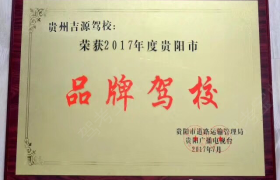 贵州吉源驾校：
荣获2017年度贵阳市
品牌驾校
贵阳市道路运输管理局
贵州广播电视台
2017年7月